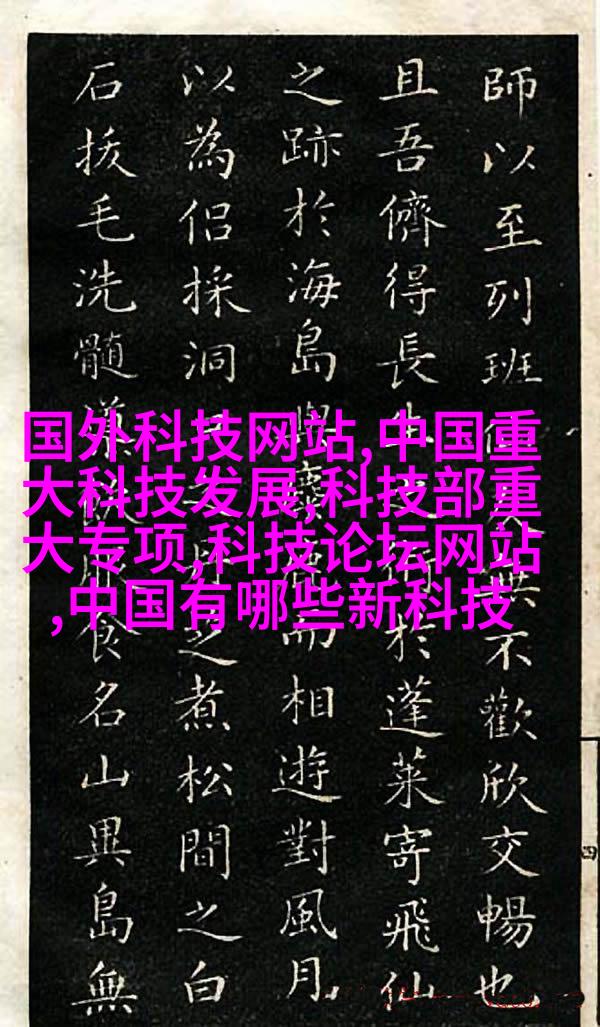 師以至列班無不歡欣交暢也
且吾儕得長於蓬莱寄飛仙
之跡於海島與而相遊對風月
以為侣採洞之煮松間之白
石拔毛洗髓食名山異島無
国外科技网站,中国重
大科技发展,科技部重
大专项,科技论坛网站
,中国有哪些新科技
四